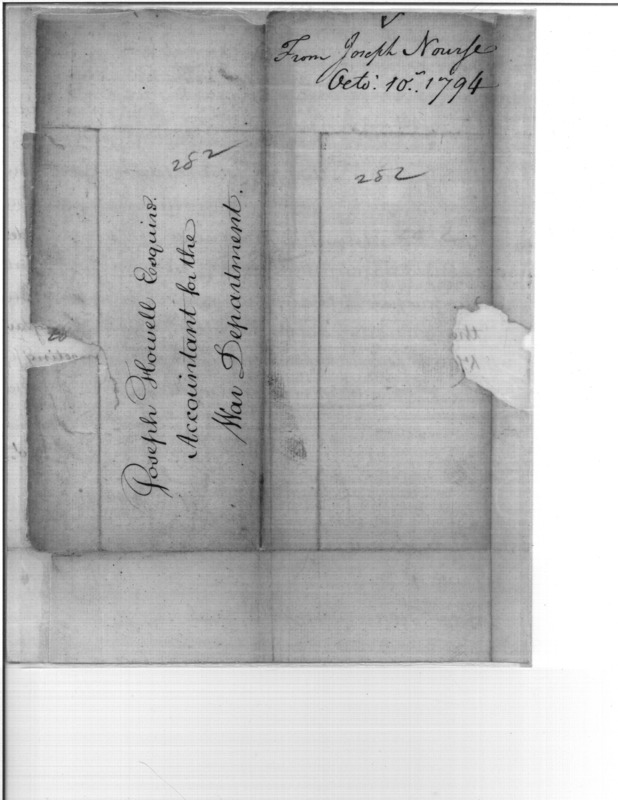 From Joseph Nourse
Octo: 10th 1794
282
282
Joseph Howell Esquire.
Accountant for the
War Department.
this